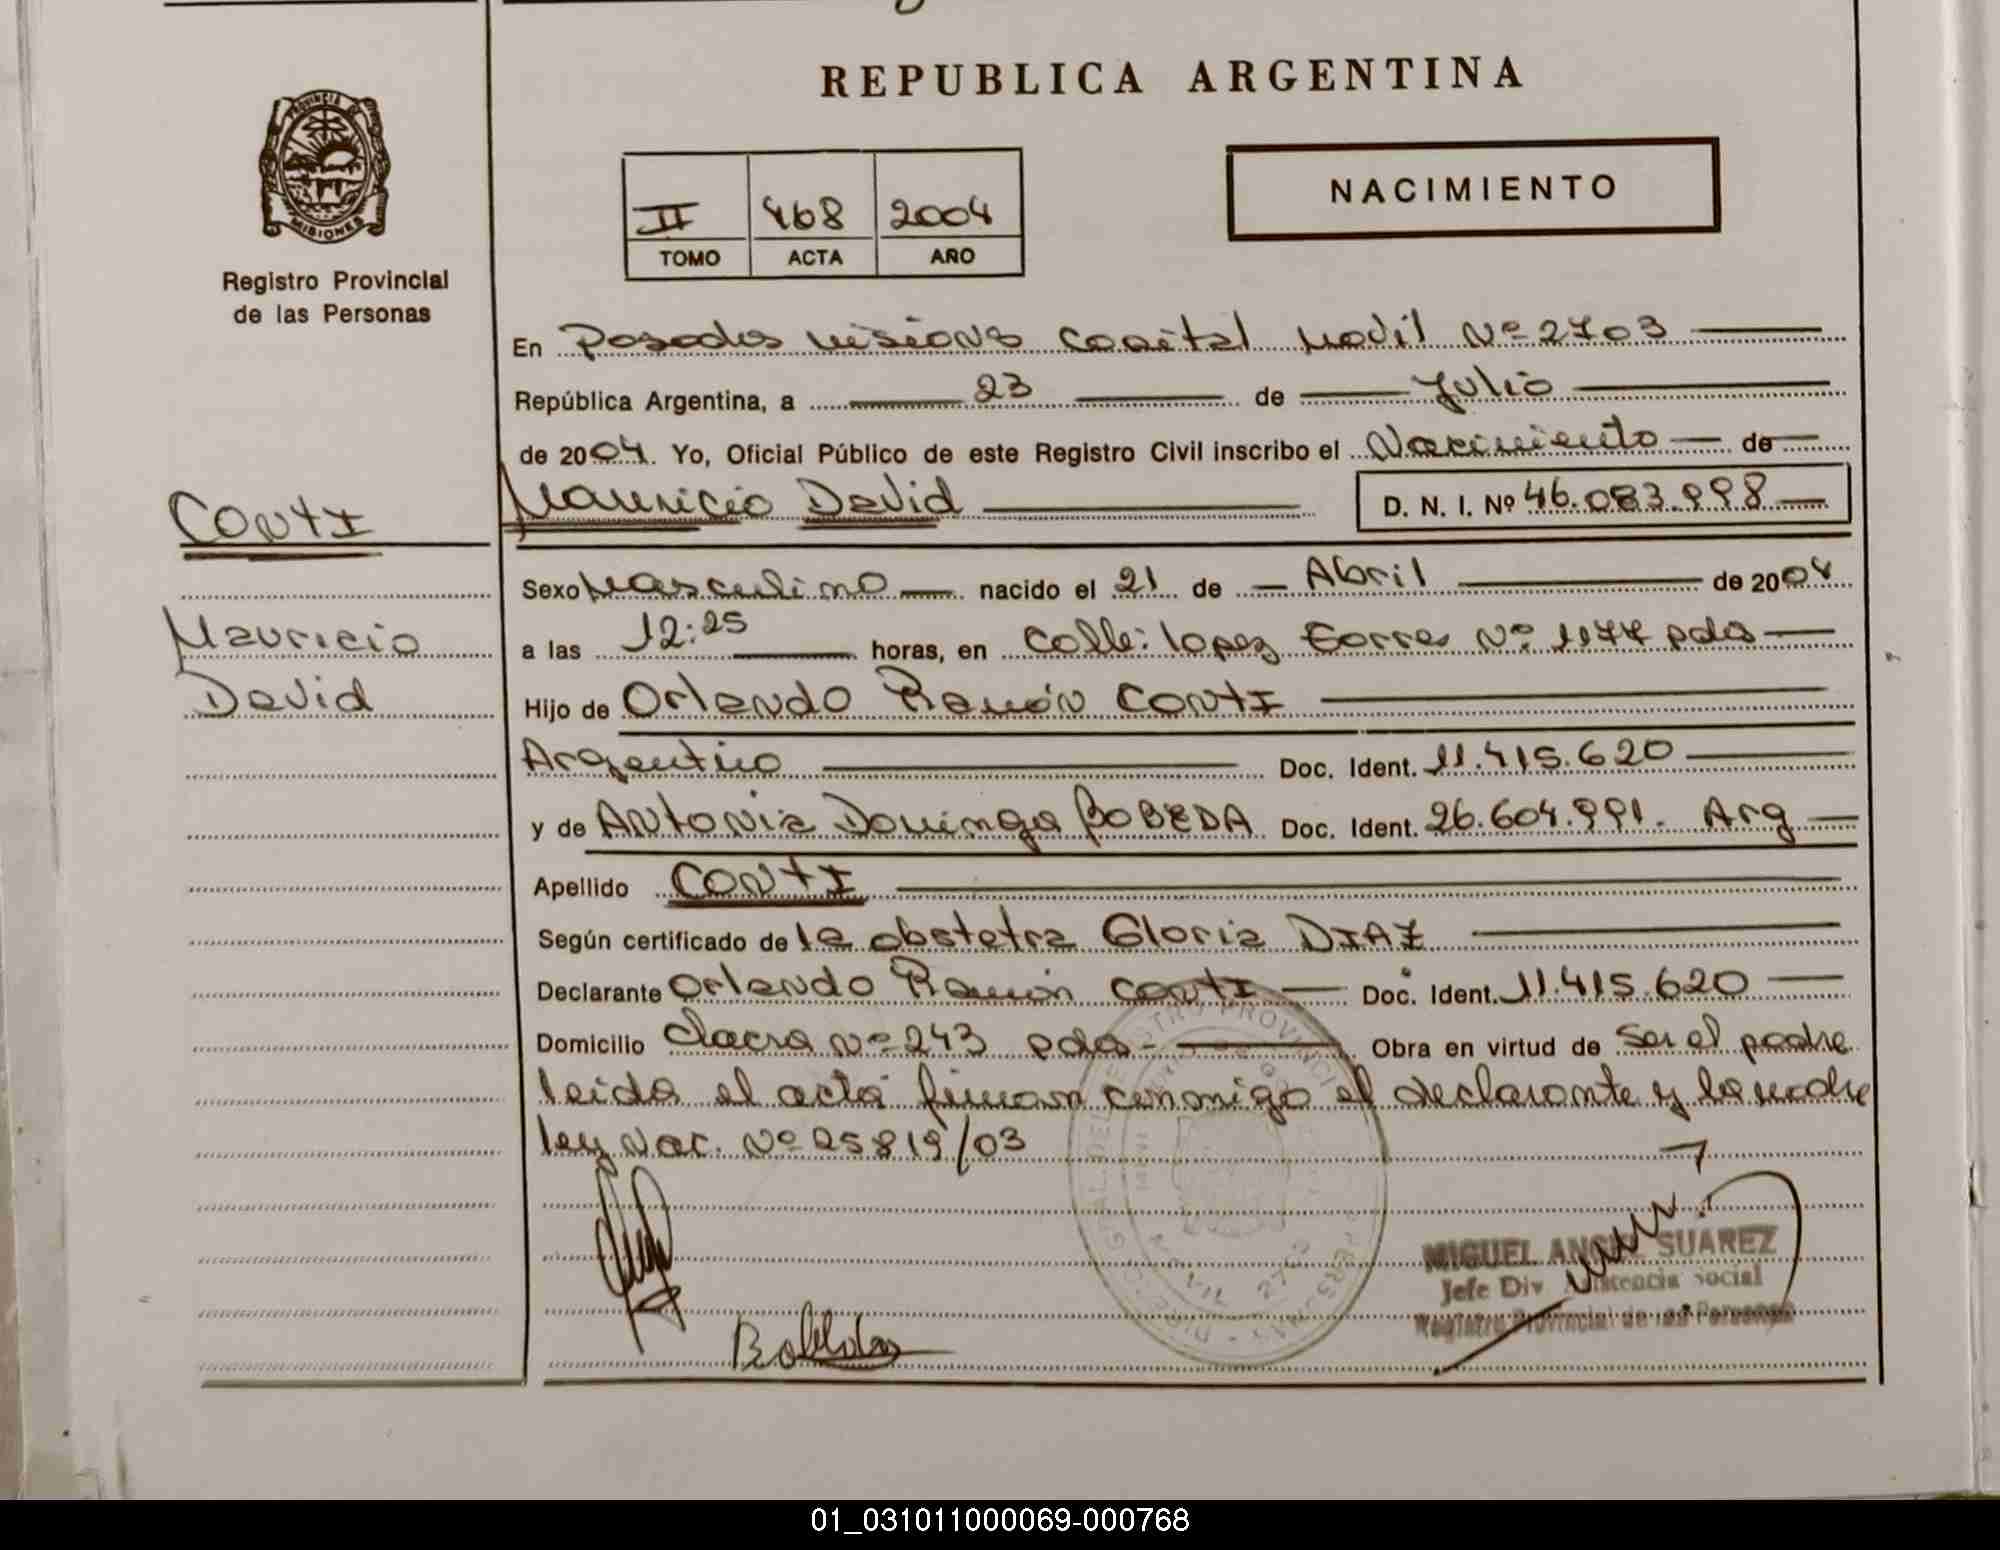 REPUBLICA ARGENTINA
PROVINCIA DE
MISIONES
Registro Provincial
de las Personas
II 468 2004
TOMO ACTA AÑO
NACIMIENTO
En Posadas Misiones Capital Movil Nº 2703
República Argentina, a 23 de Julio
de 2004. Yo, Oficial Público de este Registro Civil inscribo el Nacimiento de
CONTI
Mauricio David D. N. I. Nº 46.083.998
Sexo Masculino nacido el 21 de Abril de 2004
Mauricio
a las 12:25 horas, en Calle: Lopez Torres Nº 1177 pdas
David
Hijo de Orlando Ramón CONTI
Argentino Doc. Ident. 11.415.620
y de ANTONIA Dominga BOBEDA Doc. Ident. 26.604.991. Arg
Apellido CONTI
Según certificado de la obstetra Gloria DIAZ
Declarante Orlando Ramón CONTI Doc. Ident. 11.415.620
Domicilio Chacra Nº 243 pdas- Obra en virtud de ser el padre
leida el acta firman conmigo el declarante y la madre
ley Nac. Nº 25819/03
MIGUEL ANGEL SUAREZ
Jefe Div Asistencia Social
Registro Provincial de las Personas
01_031011000069-000768